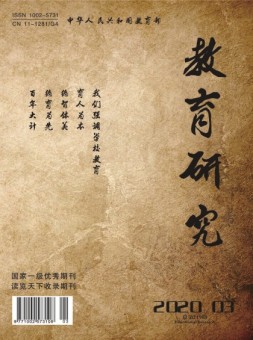 ISSN 1002-5731
CN 11-1281/G4
中华人民共和国教育部
教育研究
我们强调学校教育
育人为本
德智体美
德育为先
百年大计
国家一级优秀期刊
读览天下收录期刊
2020 03